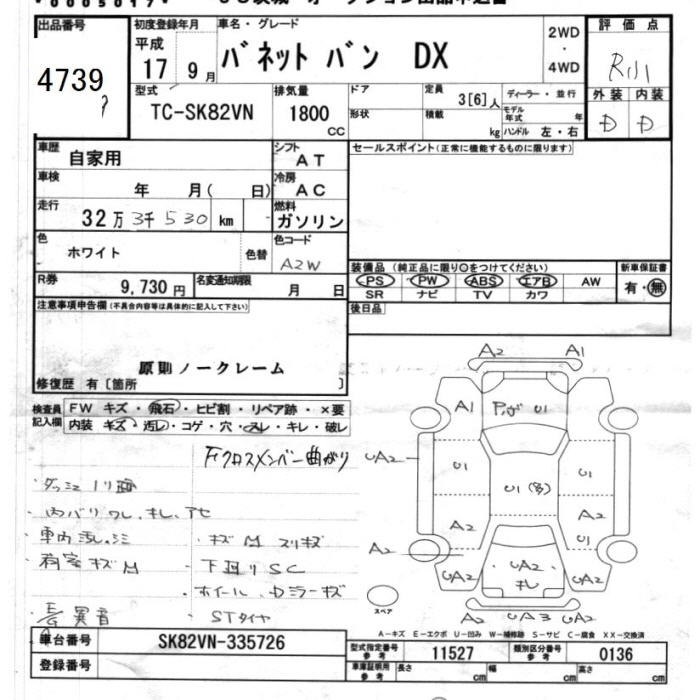 *0005017*
出品番号
4739
初度登録年月
平成
17 9月
車名・グレード
バネット バン DX
2WD
・
4WD
評価点
外装 内装
D D
型式
TC-SK82VN
排気量
1800
CC
ドア
形状
定員
3[6]人
積載
kg
ディーラー・並行
モデル年式 年
ハンドル 左・右
車歴
自家用
シフト
AT
セールスポイント(正常に機能するものに限ります)
車検
年 月( 日)
冷房
AC
走行
32万 3千 530 km
燃料
ガソリン
色
ホワイト
色替
色コード
A2W
R券
9,730円
名変通知期限
月 日
装備品 (純正品に限り○をつけてください)
PS PW ABS エアB AW
SR ナビ TV カワ
新車保証書
有・無
後日品
注意事項申告欄(不具合内容等は具体的に記入して下さい)
原則ノークレーム
修復歴 有〔箇所 〕
検査員
記入欄
FW キズ・飛石・ヒビ割・リペア跡・×要
内装 キズ・汚れ・コゲ・穴・スレ・キレ・破レ
Fクロスメンバー曲がり
内バリワレ、キレ、アセ
車内汚レ、シミ
・キズ M スリキズ
荷室キズM
・下廻りSC
・ホイール、Dミラーキズ
異音
・STタイヤ
A2 A1
A1 U1
UA2 U1 U1(多) U1
A2 A2
A2 U1
UA2 UA2 キレ UA2
スペア
A2 UA3 UA2
A-キズ E-エクボ U-凹み W-補修跡 S-サビ C-腐食 XX-交換済
車台番号
SK82VN-335726
登録番号
型式指定番号
参考
11527
類別区分番号
参考
0136
車庫証明用
参考
長さ cm 幅 cm 高さ cm